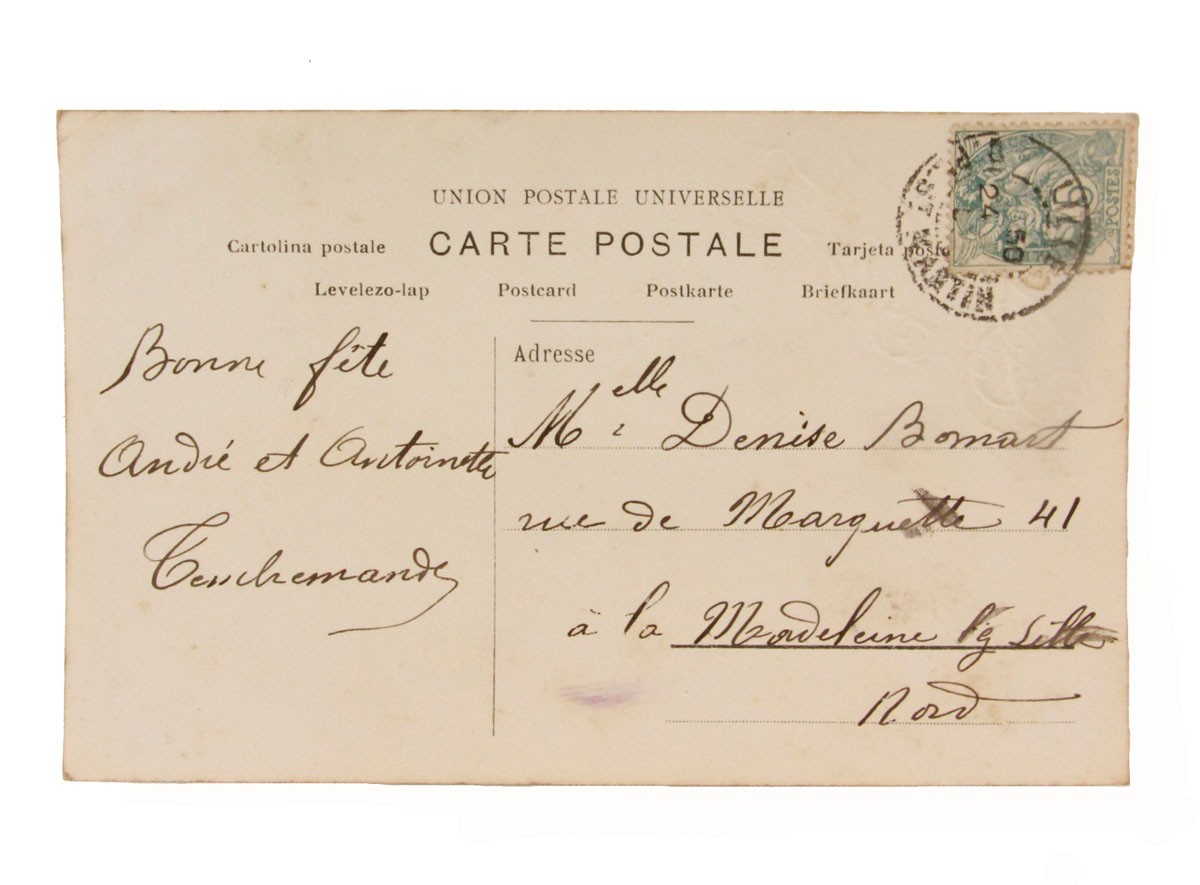 UNION POSTALE UNIVERSELLE
Cartolina postale CARTE POSTALE Tarjeta posta
Levelezo-lap Postcard Postkarte Briefkaart
POSTES
24
50
ST MARTIN
Bonne fête
André et Antoinette
Adresse
Melle Denise Bomart
rue de Marquette 41
à la Madeleine lez Lille
Nord